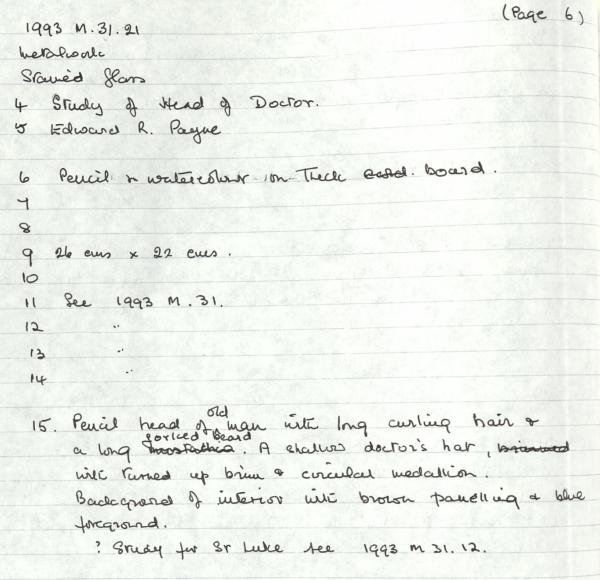 (Page 6)
1993 M.31.21
Metalwork
Stained Glass
4 Study of Head of Doctor.
5 Edward R. Payne
6 Pencil & watercolour on Thick card. board.
7
8
9 26 cms x 22 cms.
10
11 See 1993 M.31.
12 "
13 "
14 "
15. Pencil head of old man with long curling hair &
a long moustache forked beard. A shallow doctor's hat, brimmed
with turned up brim & circular medallion.
Background of interior with brown panelling & blue
foreground.
? Study for St Luke see 1993 M 31.12.